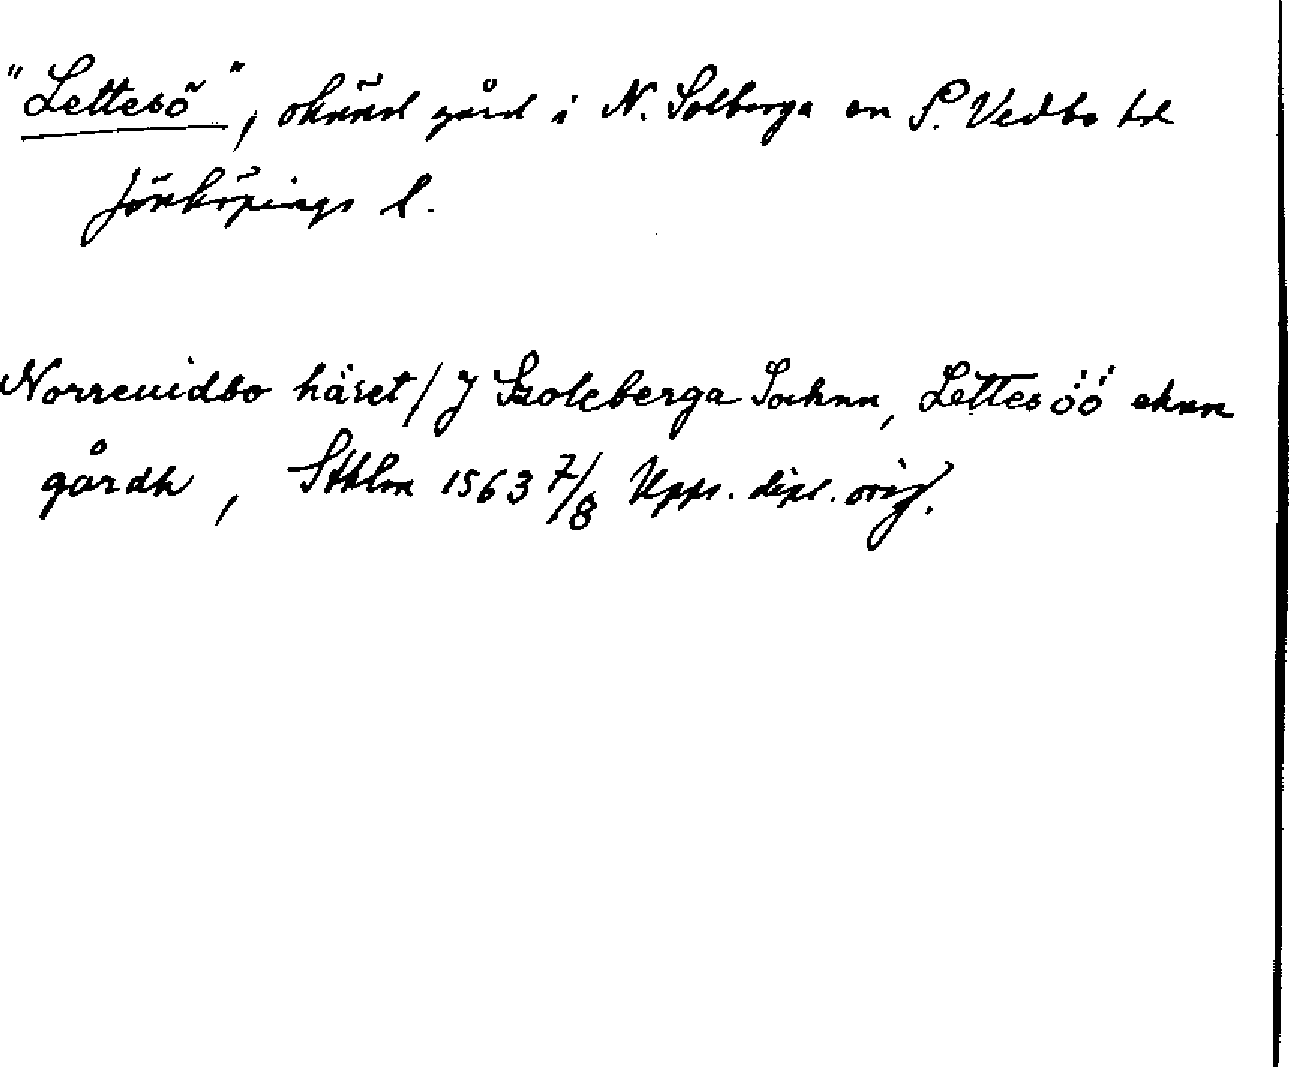 "Lettesö", okänd gård i N. Solberga sn S. Vedbo hd
Jönköpings l.
Norreuidbo häret / J Szoleberga Sochnn, Lettesöö ehnn
gårdh, Sthlm 1563 7/8 Upps. dipl. orig.